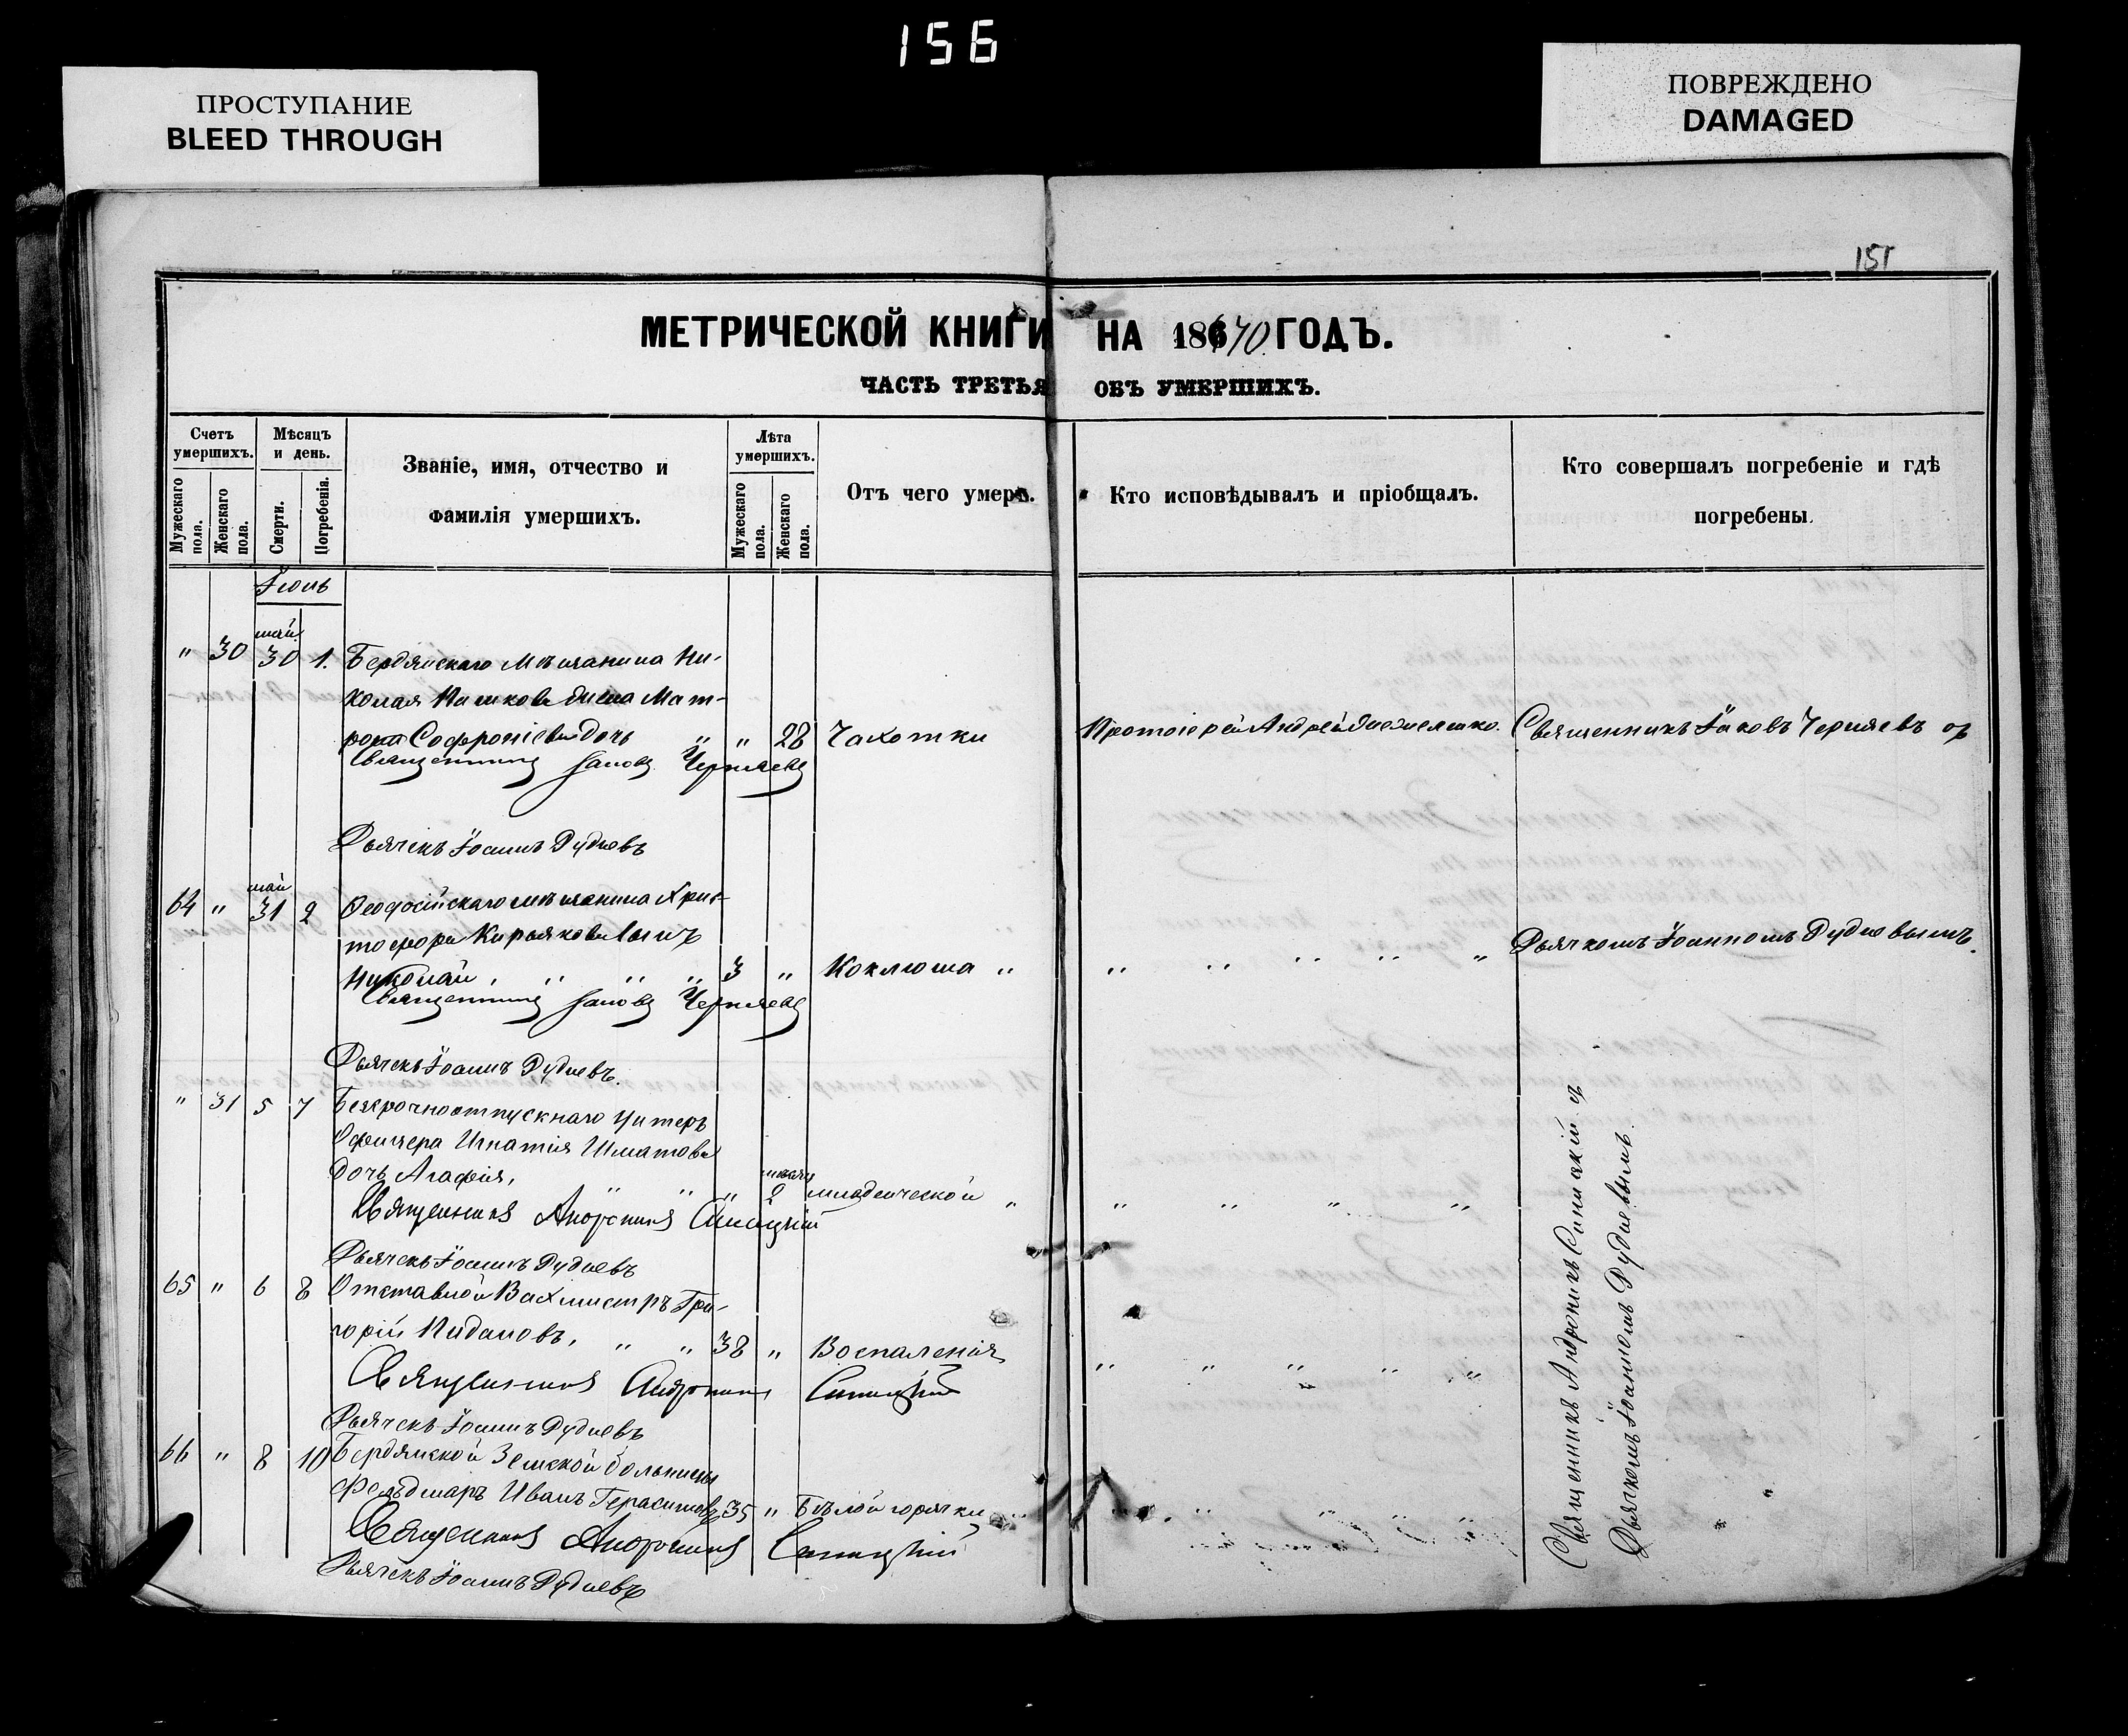 156
ПРОСТУПАНИЕ
BLEED THROUGH
ПОВРЕЖДЕНО
DAMAGED
151
МЕТРИЧЕСКОЙ КНИГИ НА 1870 ГОДЪ.
ЧАСТЬ ТРЕТЬЯ ОБЪ УМЕРШИХЪ.
Счетъ умершихъ.
Мужескаго пола.
Женскаго пола.
Мѣсяцъ и день.
Смерти.
Погребенія.
Званіе, имя, отчество и
фамилія умершихъ.
Лѣта умершихъ.
Мужескаго пола.
Женскаго пола.
Отъ чего умеръ.
Кто исповѣдывалъ и пріобщалъ.
Кто совершалъ погребеніе и гдѣ
погребены.
Іюнь
май
" 30 30 1. Бердянскаго Мѣщанина Ни-
колая жена Мат-
рона Софроніева дочь " " 28 Чахотки Протоіерей Андрей Священникъ Іаковъ Черняевъ съ
Священникъ Іаковъ Черняевъ
Дьячекъ Іоаннъ Рудневъ
май
64 " 31 2 Ѳеодосійскаго мѣщанина Хрис-
тофора Кирьякова сынъ
Николай, " " " 3 " Коклюша " " " " " " Дьячкомъ Іоанномъ Рудневымъ.
Священникъ Іаковъ Черняевъ
Дьячекъ Іоаннъ Рудневъ.
" 31 5 7 Безсрочноотпускнаго Унтеръ
Офицера Игнатія Шматова
дочь Агафія, " " " 2 младенческой " " " " "
Священникъ Андроникъ Синицкій
Дьячекъ Іоаннъ Рудневъ
65 " 6 8 Отставной Вахмистръ Гри-
горій " " 38 " Воспаленія " " " " "
Священникъ Андроникъ Синицкій
Дьячекъ Іоаннъ Рудневъ
66 " 8 10 Бердянской Земской больницы
Фельдшаръ Иванъ Герасимовъ 35 " Бѣлой горячки
Священникъ Андроникъ Синицкій
Дьячекъ Іоаннъ Рудневъ
Священникъ Андроникъ Синицкій съ
Дьячкомъ Іоанномъ Рудневымъ.